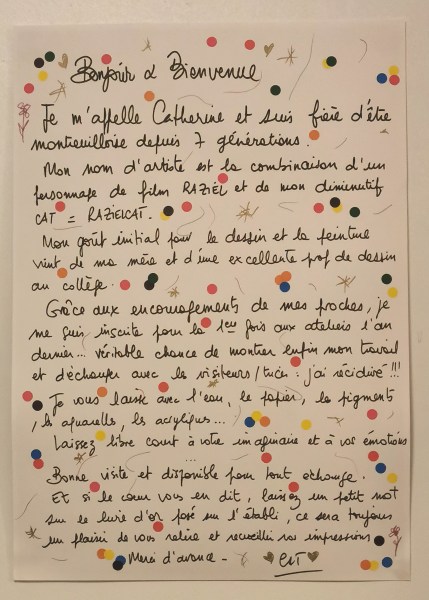 Bonjour & Bienvenue
Je m'appelle Catherine et suis fière d'être
montreuilloise depuis 7 générations.
Mon nom d'artiste est la combinaison d'un
personnage de film RAZIËL et de mon diminutif
CAT = RAZIELCAT.
Mon goût initial pour le dessin et la peinture
vient de ma mère et d'une excellente prof de dessin
au collège.
Grâce aux encouragements de mes proches, je
me suis inscrite pour la 1ere fois aux ateliers l'an
dernier... véritable chance de montrer enfin mon travail
et d'échanger avec les visiteurs/trices : j'ai récidivé !!!
Je vous laisse avec l'eau, le papier, les pigments
, les aquarelles, les acryliques...
Laissez libre court à votre imaginaire et à vos émotions
...
Bonne visite et disponible pour tout échange.
Et si le cœur vous en dit, laissez un petit mot
sur le livre d'or posé sur l'établi, ce sera toujours
un plaisir de vous relire et recueillir vos impressions
Merci d'avance - CAT